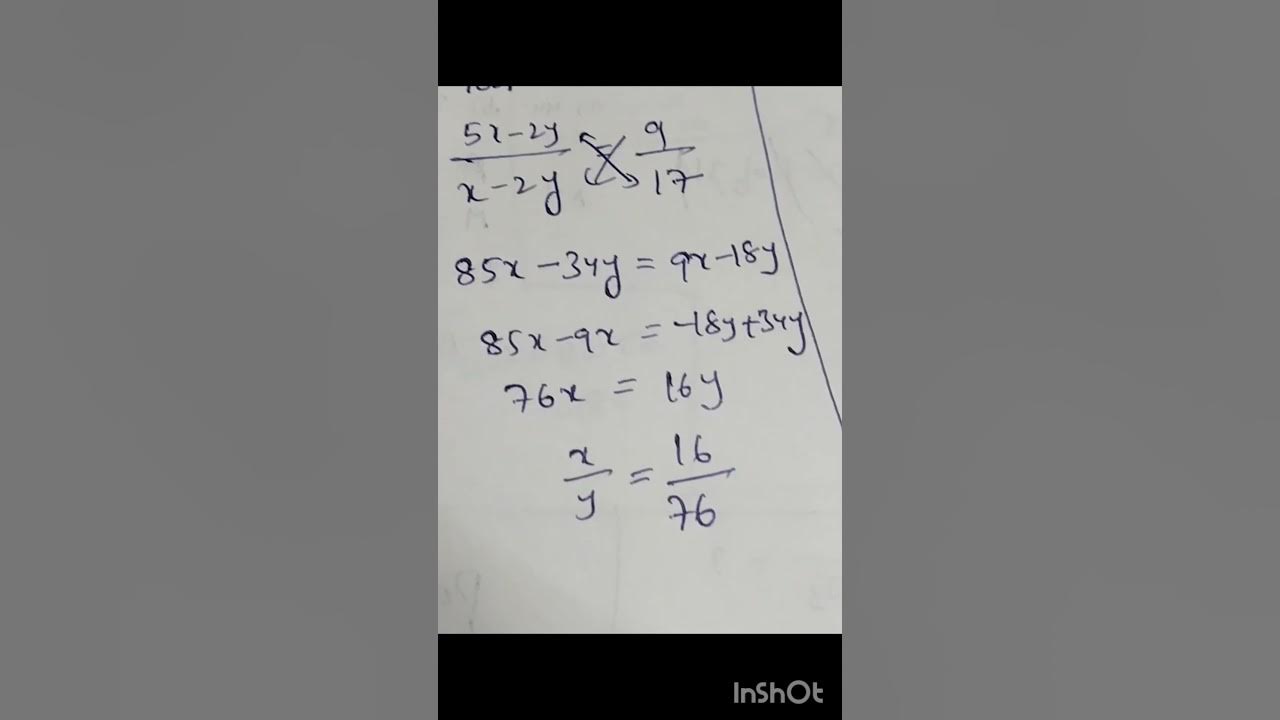 5x-2y / x-2y = 9 / 17
85x-34y = 9x-18y
85x-9x = -18y+34y
76x = 16y
x / y = 16 / 76
InShOt